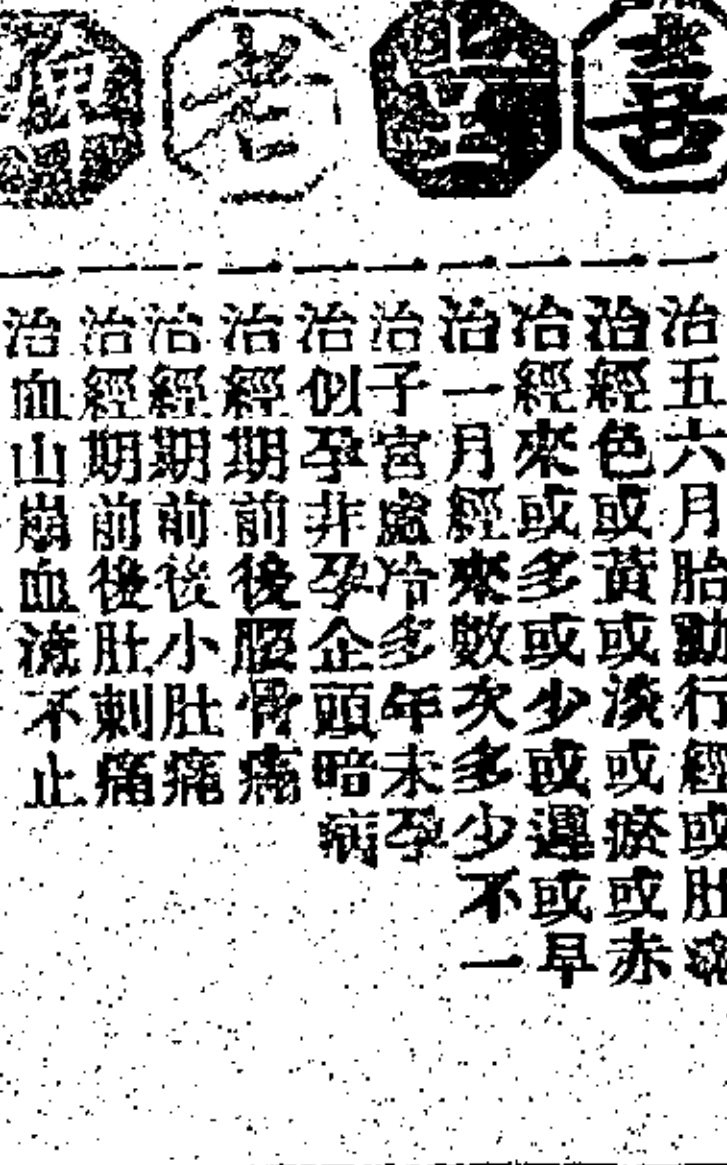 善堂老
一治五六月胎動行經或肚痛
一治經色或黃或淡或瘀或赤
一治經來或多或少或遲或早
一治一月經來數次多少不一
一治子宮虛冷多年未孕
一治似孕非孕企頭暗病
一治經期前後腰骨痛
一治經期前後小肚痛
一治經期前後肚刺痛
一治血山崩血流不止